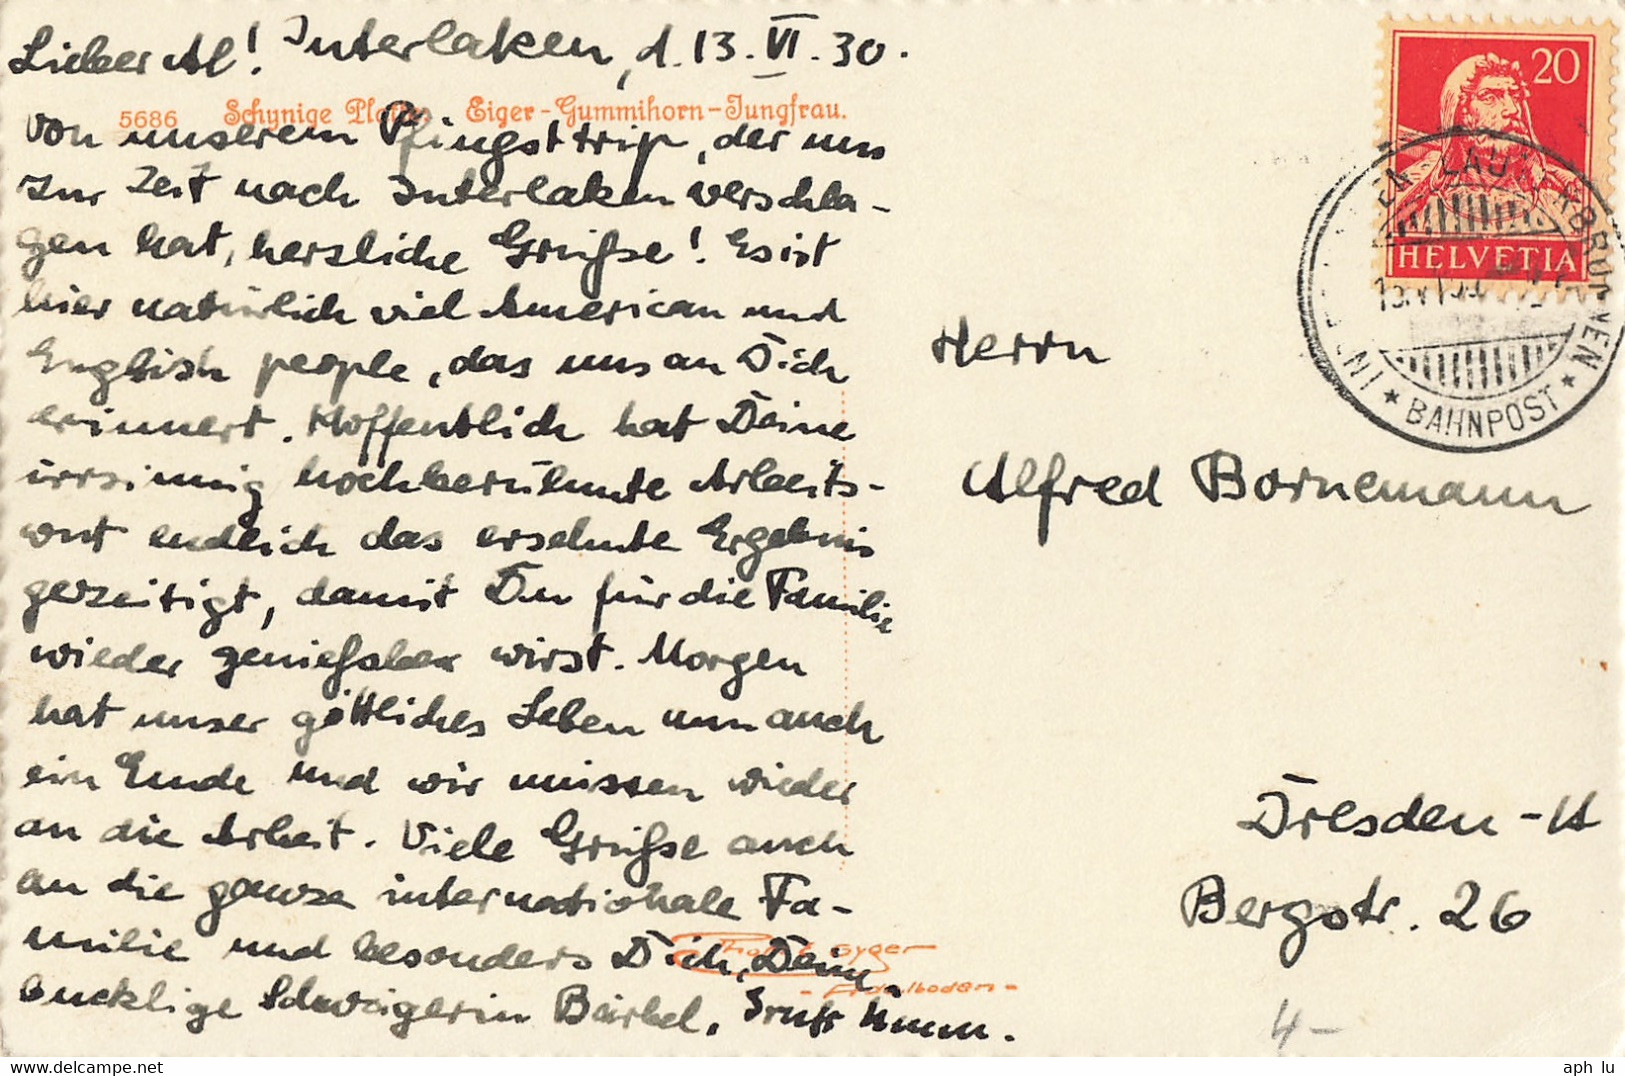 Lieber Al! Interlaken, d. 13. VI. 30.
5686 Schynige Platte Eiger-Gummihorn-Jungfrau.
von unserem Pfingsttrip, der uns
zur Zeit nach Interlaken verschla-
gen hat, herzliche Grüße! Es ist
hier natürlich viel American und
English people, das uns an Dich
erinnert. Hoffentlich hat Deine
irrsinnig hochberühmte Arbeits-
wut endlich das ersehnte Ergebnis
gezeitigt, damit Du für die Familie
wieder genießbar wirst. Morgen
hat unser göttliches Leben nun auch
ein Ende und wir müssen wieder
an die Arbeit. Viele Grüße auch
an die ganze internationale Fa-
milie und besonders Dich, Deine
bucklige Schwägerin Bärbel,
Gyger
Adelboden
20
HELVETIA
LAUTERBRUNNEN
* BAHNPOST *
Herrn
Alfred Bornemann
Dresden-A
Bergstr. 26
4-
aph lu